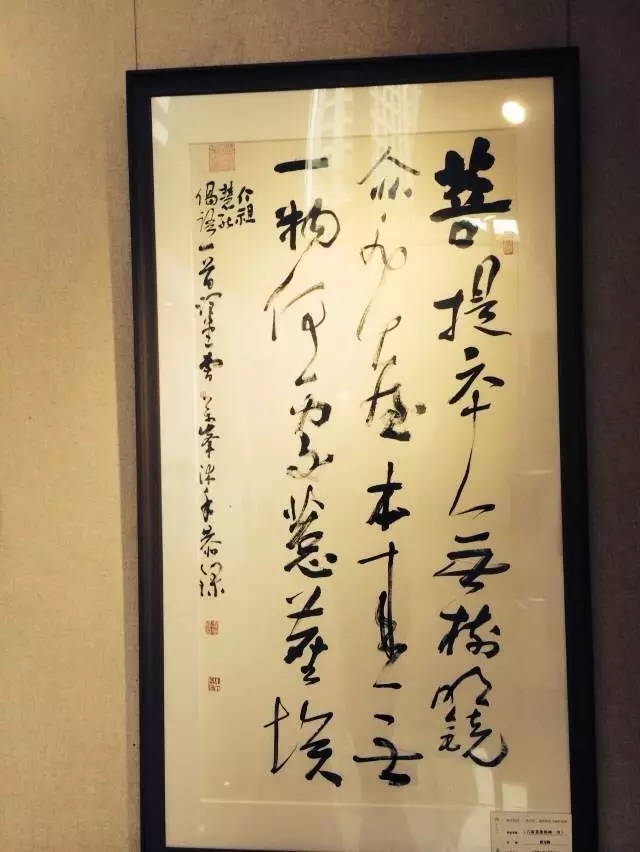 菩提本無樹明鏡
亦非臺本來無
一物何處惹塵埃
六祖
慧能
偈語一首 峰沐手恭録